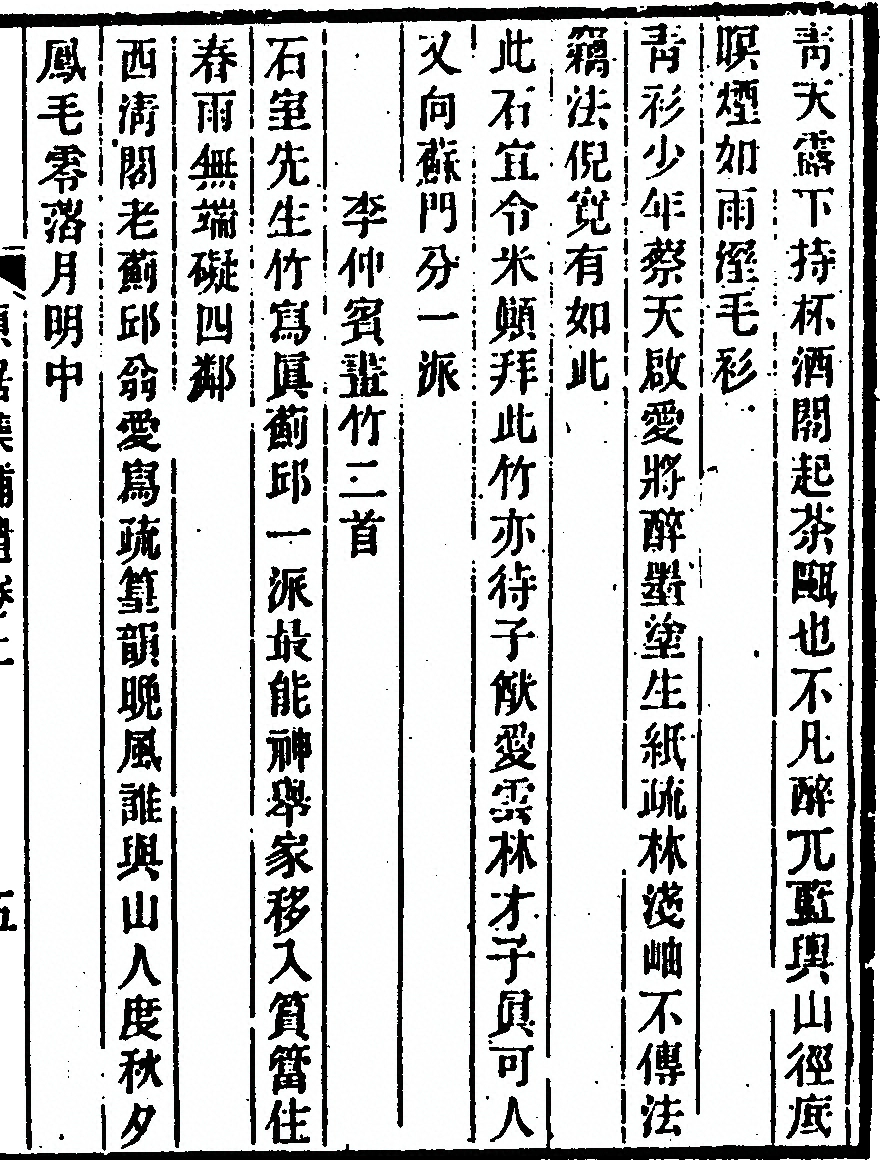 青天露下持杯酒閣起茶甌也不凡醉兀藍輿山徑底
暝煙如雨溼毛衫
青衫少年蔡天啟愛將醉墨塗生紙疏林淺岫不傳法
竊法倪寬有如此
此石宜令米顛拜此竹亦待子猷愛雲林才子眞可人
又向蘇門分一派
李仲賓畫竹二首
石室先生竹寫眞薊邱一派最能神舉家移入篔簹住
春雨無端礙四鄰
西淸閣老薊邱翁愛寫疏篁韻晚風誰與山人度秋夕
鳳毛零落月明中
補遺卷上
五